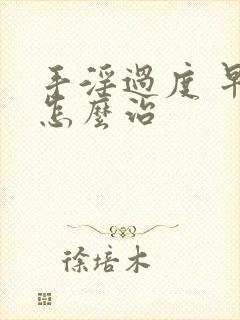 手淫過度 早
怎麼治
徐培木